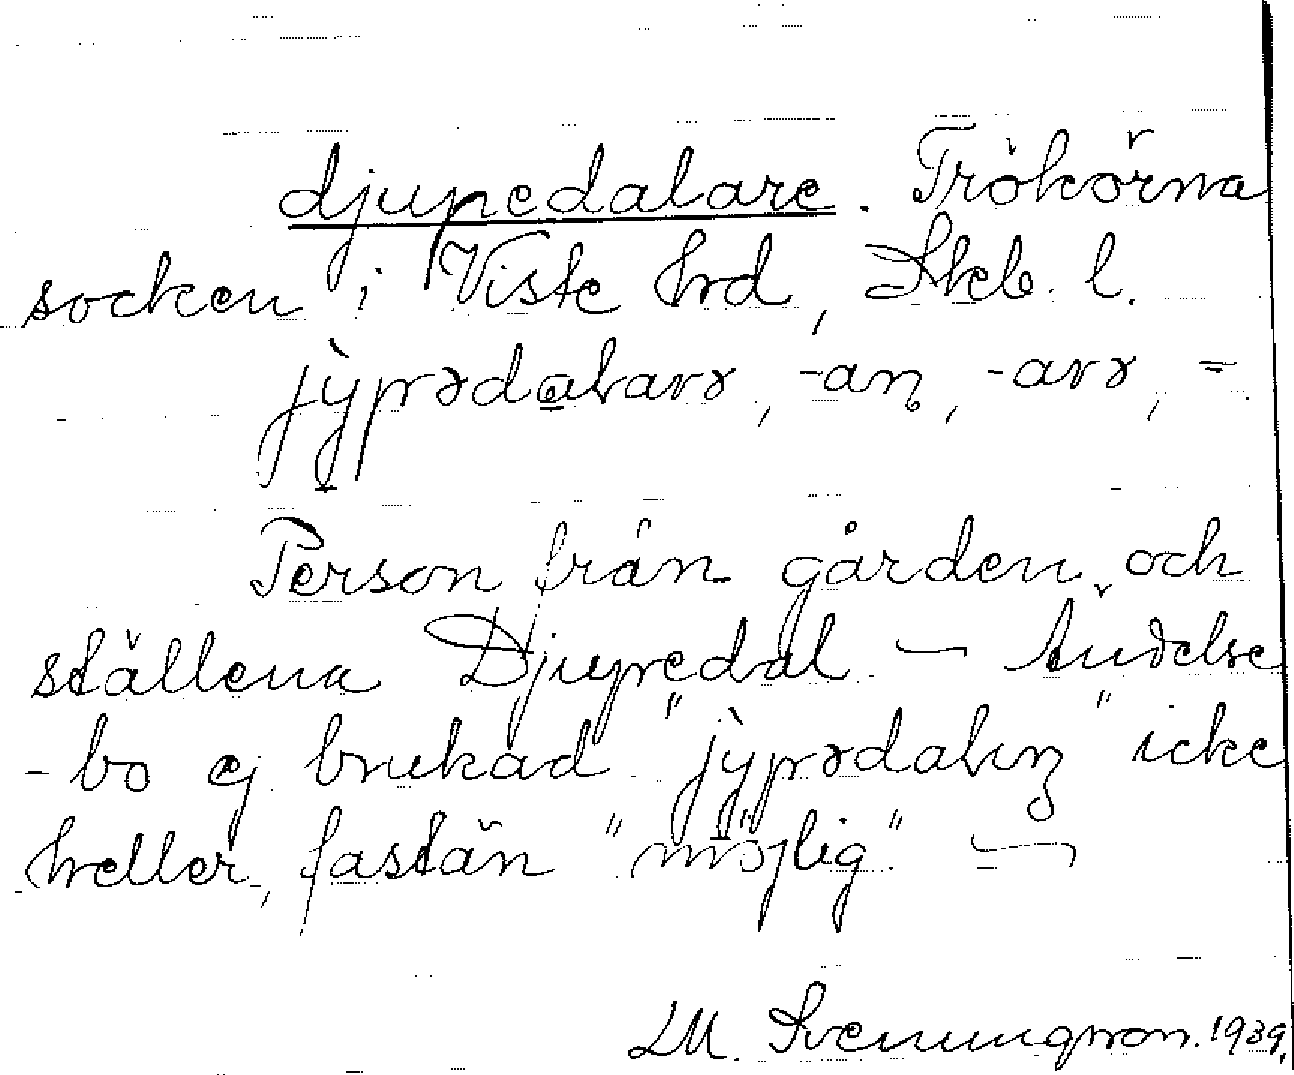 djupedalare. Trökörna
socken i Viste hrd, Skab. l.
jỳpədalarə, -an, -arə, =
Person från gården och
ställena Djupedal. — Ändelse
-bo ej brukad. "jỳpədaliŋ" icke
heller, fastän "möjlig". —
LM. Svenungsson. 1939.